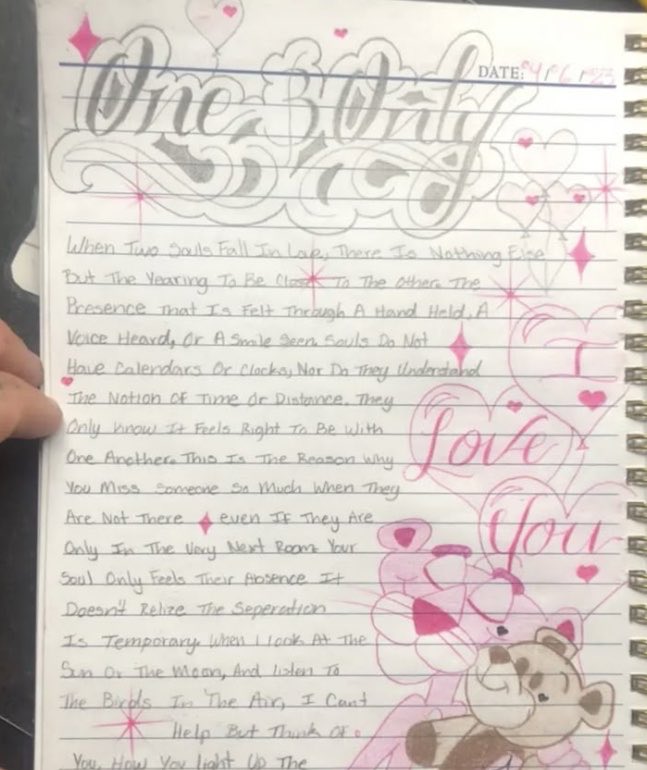 DATE: 4/6/23
One & Only
When Two Souls Fall In Love, There Is Nothing Else
But The Yearing To Be Close To The Other. The
Presence That Is Felt Through A Hand Held, A
Voice Heard, Or A Smile Seen. Souls Do Not
Have Calendars Or Clocks, Nor Do They Understand
The Notion Of Time Or Distance. They
Only Know It Feels Right To Be With
One Another. This Is The Reason Why
You Miss Someone So Much When They
Are Not There even If They Are
Only In The Very Next Room. Your
Soul Only Feels Their Absence It
Doesn't Relize The Seperation
Is Temporary. When I look At The
Sun Or The Moon, And listen To
The Birds In The Air, I Cant
Help But Think Of
You. How You light Up The
I
Love
You